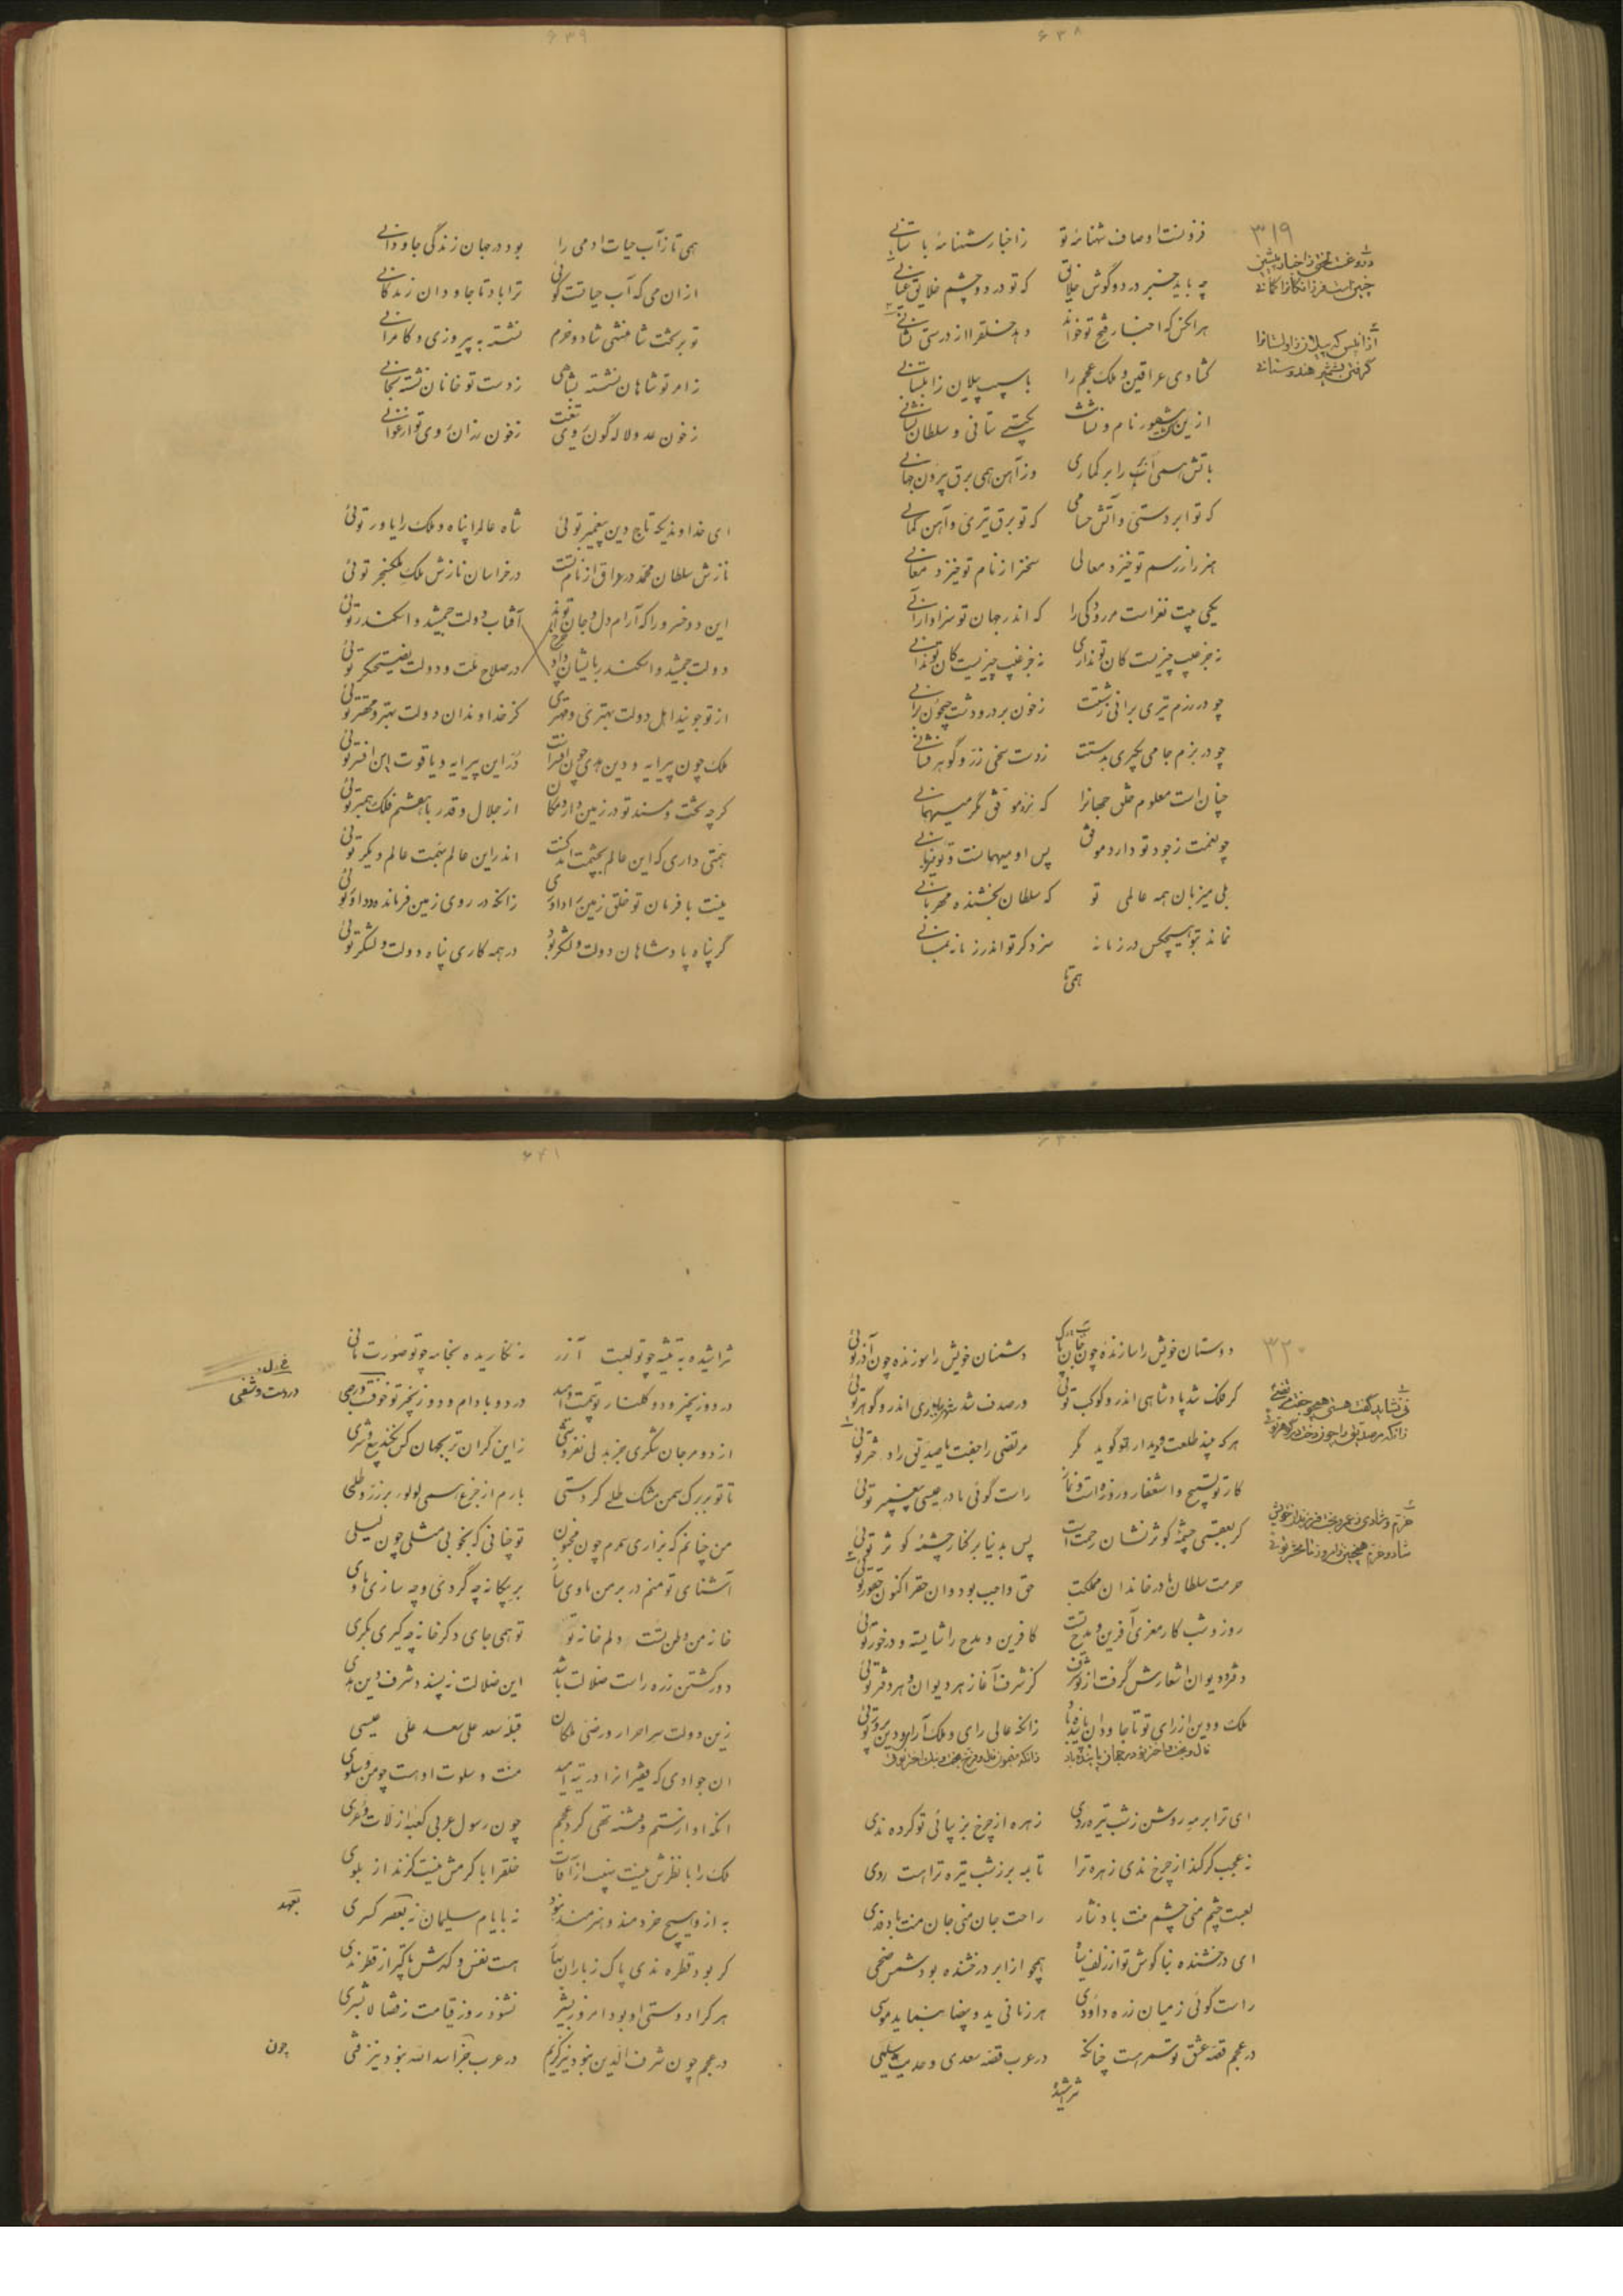 ۶۳۸
۳۱۹
فزونست اوصاف شهنامهٔ تو ز اخبار شهنامهٔ باستانی
چه باید خبر در دو گوش خلایق که تو در دو چشم خلایق عیانی
هر آنکس که اخبار فتح تو خواند دهد خلق را از درستی نشانی
گشادی عراقین و ملک عجم را باسیب پیلان زابلستانی
ازین پس شهور نام و نشانت بچستی ستانی و سلطان نشانی
بآتش همی آب را برگماری وز آهن همی برق پرون جهانی
که تو ابر دستی و آتش حسامی که تو برق تیری و آهن کمانی
هنر را ز رسم تو خیزد معالی سخن را ز نام تو خیزد معانی
یکی بیت نغز است مر رودکی را که اندر جهان تو سزاوار آنی
نه جز عیب چیزیست کان تو نداری نه جز غیب چیزیست کان تو ندانی
چو در رزم تیری برانی ز شستت ز خون بر در و دشت جیحون برانی
چو در بزم جامی بگیری بدستت ز دست سخی زر و گوهر فشانی
چنان است معلوم خلق جهانرا که نزد موفق مگر میهمانی
چو نعمت ز جود تو دارد موفق پس او میهمانست و تو میزبانی
بلی میزبان همه عالمی تو که سلطان بخشنده مهربانی
نماند بتو هیچکس در زمانه سزد گر تو اندر زمانه بمانی
همی تا
۶۳۹
همی تا ز آب حیات آدمی را بود در جهان زندگی جاودانی
از آن می که آب حیاتست گوئی ترا باد تا جاودان زندگانی
تو بر تخت شاهنشهی شاد و خرم نشسته به پیروزی و کامرانی
ز امر تو شاهان نشسته بشاهی ز دست تو خانان نشسته بخانی
ز خون عدو لاله گون روی تیغت ز خون رزان روی تو ارغوانی
ای خداوندیکه تاج دین پیغمبر توئی شاه عالم را پناه و ملک را یاور توئی
نازش سلطان محمد در عراق از نام تست در خراسان نازش ملک ملکسنجر توئی
این دو خسرو را که آرام دل و جان تو اند آفتاب دولت جمشید و اسکندر توئی
دولت جمشید و اسکندر بایشان داد چرخ در صلاح ملت و دولت نصیحتگر توئی
از تو جویند اهل دولت بهتری و مهتری کز خداوندان دولت بهتر و مهتر توئی
ملک چون پیرایه و دین هدی چون افسر است در این پیرایه و یاقوت این افسر توئی
گرچه تخت و مسند تو در زمین دارد مکان از جلال و قدر با هشتم فلک همبر توئی
همتی داری که این عالم بچشمت اندکست اندر این عالم بهمت عالم دیگر توئی
نیست بافرمان تو خلق زمین را داوری زانکه در روی زمین فرمانده و داور توئی
گر پناه پادشاهان دولت و لشکر بود در همه کاری پناه دولت و لشکر توئی
۳۲۰
دوستان خویش را سازنده چون دشمنان خویش را سوزنده چون آذر توئی
گر فلک شد پادشاهی اندر و کوکب توئی در صدف شد شهریاری اندر و گوهر توئی
هرکه بیند طلعت و دیدار تو گوید مگر مرتضی را جفت یا صدیق را دختر توئی
کار تو تسبیح و استغفار و روزه است و نماز راست گوئی مادر عیسی پیغمبر توئی
گر بعقبی چشمهٔ کوثر نشان رحمت است پس بدنیا بر کنار چشمهٔ کوثر توئی
حرمت سلطان مادر خاندان مملکت حق واجب بود و آن حقرا کنون حقور توئی
روز و شب کار معزی آفرین و مدح تست کآفرین و مدح را شایسته و درخور توئی
دفتر و دیوان اشعارش گرفت از تو شرف کز شرف آغاز هر دیوان و هر دفتر توئی
ملک و دین از رای تو تا جاودان پاینده باد زانکه عالی رای و ملک آرای و دین پرور توئی
ای ترا بر مه روشن ز شب تیره ردی زهره از چرخ بزیبائی تو کرده ندی
نه عجب گر کند از چرخ ندی زهره ترا تا به مه بر ز شب تیره ترا هست ردی
لعبت چشم منی چشم منت باد نثار راحت جان منی جان منت باد فدی
ای درخشنده بناگوش تو از زلف سیاه همچو از ابر درخشنده بود شمس ضحی
راست گوئی ز میان زره داودی هر زمانی ید و بیضا بنماید موسی
در عجم قصهٔ عشق تو سمر هست چنانکه در عرب قصه سعدی و حدیث سلمی
تراشیده
۶۴۱
نتراشیده به تیشه چو تو لعبت آزر نه نگاریده بخامه چو تو صورت مانی
در دو زنجیر و دو گلنار تو در دو بادام و دو زنجیر تو خوف
از دو مرجان شکری جز بدلی نفروشی زین گران تر بجهان کس نکند بیع و شری
تا تو بر برگ سمن مشک طلی کردستی بارم از جزع همی لولو بر زر طلی
من چنانم که بزاری سمرم چون مجنون تو چنانی که بخوبی مثلی چون لیلی
آشنای تو منم در بر من ماوی ساز بر بیگانه چه گردی و چه سازی ماوی
خانهٔ من دل تست و دلم خانهٔ تو تو همی جای دگر خانه چه گیری بکری
دور گشتن ز ره راست ضلالت باشد این ضلالت نه پسندد شرف دین هدی
زین دولت سر احرار و رضی ملکان قبلهٔ سعد علی سعد علی عیسی
آن جوادی که فقیران را در تیه امید منت و سلوت او هست چو من و سلوی
آنکه او از ستم و فتنه تهی کرد عجم چون رسول عربی کعبه از لات و عزی
ملک را با نظرش نیست نهیب از آفات خلقرا با کرمش نیست گزند از بلوی
به ازو هیچ خردمند و هنرمند نبود نه بایام سلیمان نه بعصر کسری
گر بود قطره ندی پاک ز باران بهار هست نفس و گهرش پاکتر از قطر ندی
هر که را دوستی او بود امروز بشیر نشنود روز قیامت ز فضا لا بشری
در عجم چون شرف الدین نبود نیز کریم در عرب جز اسدالله نبود نیز فتی
بعهد
چون